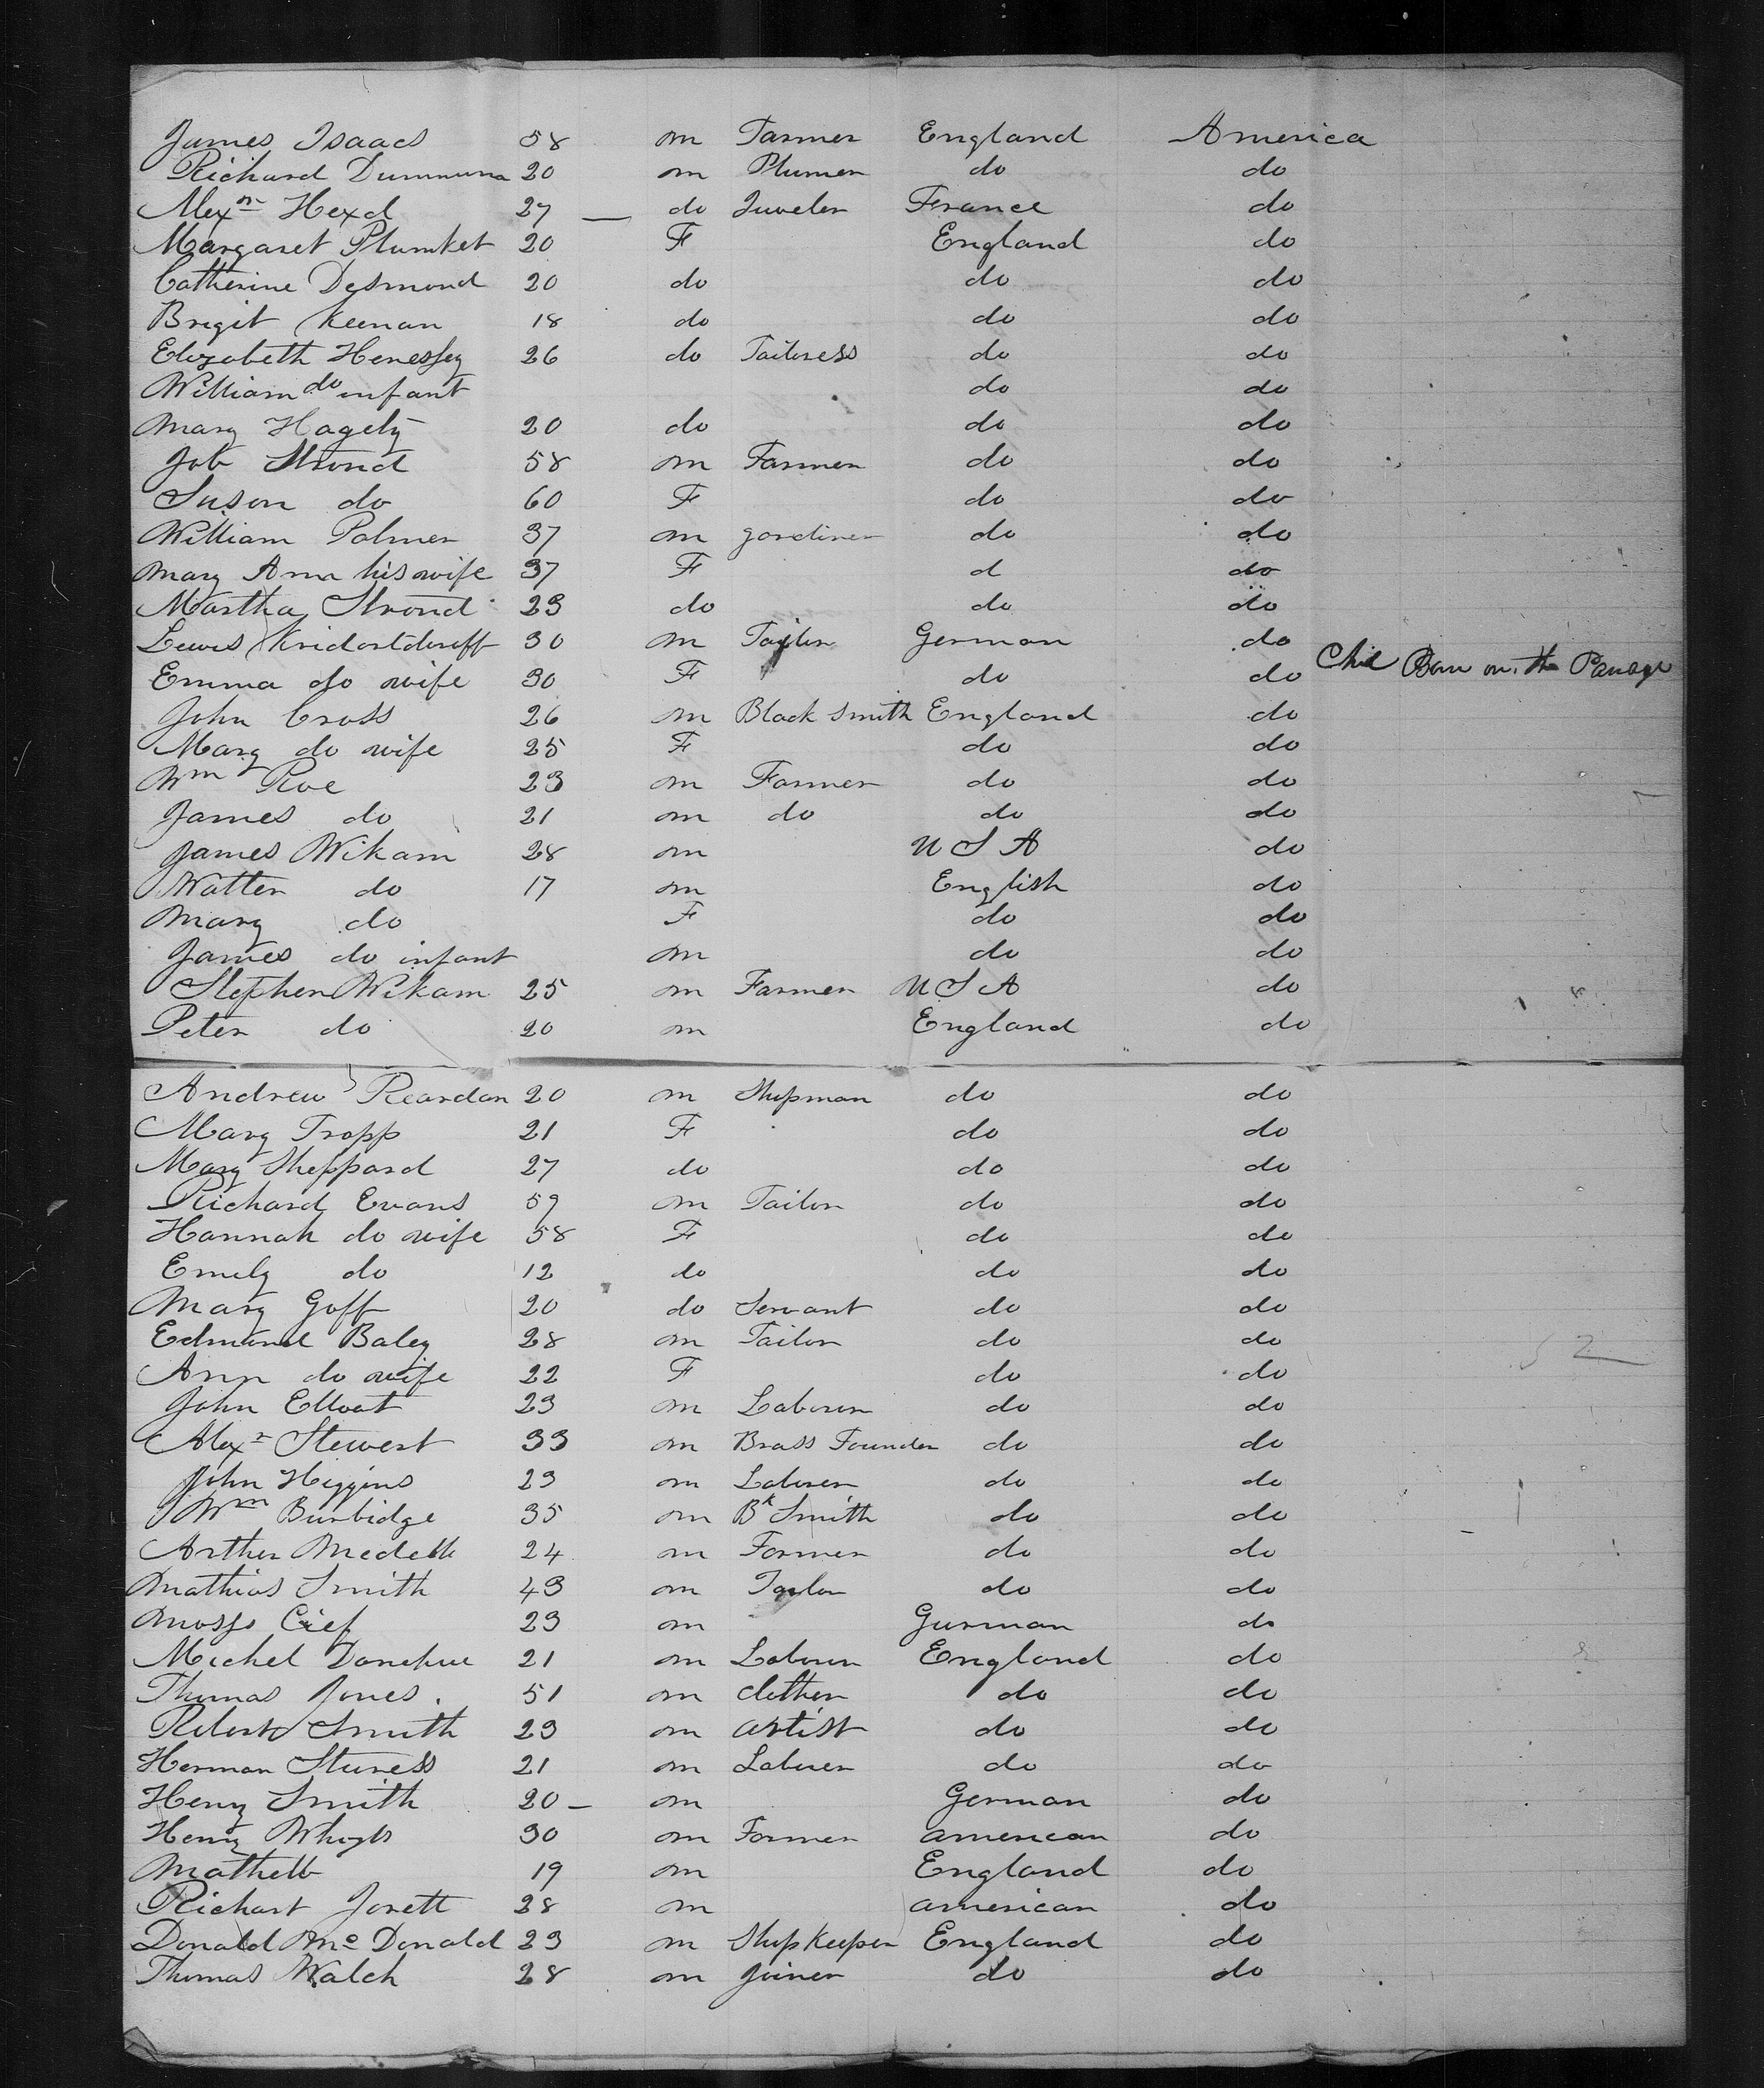 James Isaacs 58 m Farmer England America
Richard 20 m Plumer do do
Alexr Hexd 27 — do Juveler France do
Margaret Plumket 20 F England do
Catherine Desmond 20 do do do
Brigit Keenan 18 do do do
Elizabeth Henessey 26 do Tailoress do do
William do infant do do
Mary Hagety 20 do do do
Job Strond 58 m Farmer do do
Suson do 60 F do do
William Palmer 37 m gardiner do do
Mary Ann his wife 37 F d do
Martha Strond 23 do do do
Lewis 30 m Tailor German do
Emma do wife 30 F do do Chil Born on the Passage
John Cross 26 m Black smith England do
Mary do wife 25 F do do
Wm Roe 23 m Farmer do do
James do 21 m do do do
James Wikam 28 m U S A do
Walter do 17 m English do
Mary do F do do
James do infant m do do
Stephen Wikam 25 m Farmer U S A do
Peter do 20 m England do
Andrew Reardon 20 m Shipman do do
Mary Tropp 21 F do do
Mary Sheppard 27 do do do
Richard Evans 59 m Tailor do do
Hannah do wife 58 F do do
Emily do 12 do do do
Mary Goff 20 do Servant do do
Edmund Baley 28 m Tailor do do
Ann do wife 22 F do do
John Ellvat 23 m Laborer do do
Alexr Stewert 33 m Brass Founder do do
John Higgins 23 m Laborer do do
Wm Burbidge 35 m Bk Smith do do
Arther 24 m Former do do
Mathias Smith 43 m Taylor do do
Moses 23 m Gurman do
Michel Donehue 21 m Laborer England do
Thomas Jones 51 m clother do do
Robert Smith 23 m artist do do
Herman Sturess 21 m Laborer do do
Henry Smith 20 — m German do
Henry 30 m Former american do
Mathell 19 m England do
Richart Jorett 28 m american do
Donald Mc Donald 23 m Shipkeeper England do
Thomas Walch 28 m joiner do do